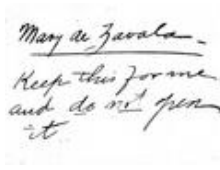 Mary de Zavala
Keep this for me
and do not open
it